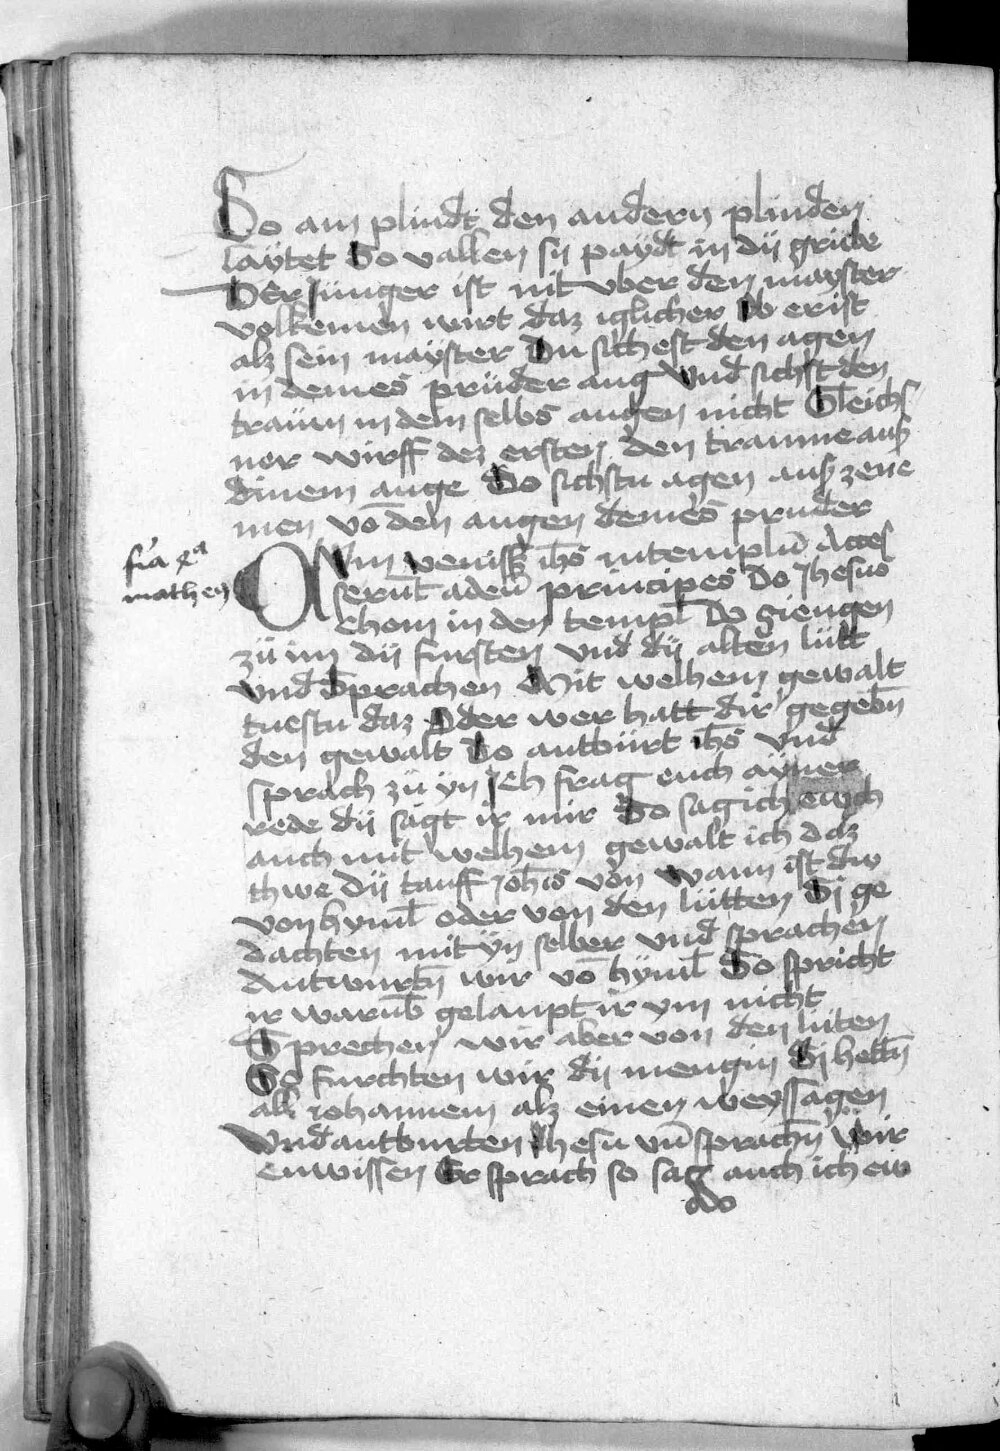 So ain plindt den andern plinden
laytet So vallen sij paydt in dij grube
Der Jünger ist nit vber den mayster
volkemen wirt daz iglicher ob er ist
alz sein mayster Du sichest den agen
in deines prüder aug Vnd sichst den
traum in dein selbs augen nicht Gleichs
ner wirff dez ersten den traume auß
dinem auge So sichstu agen auß zene
men vō den augen deines pruder
fr̄ia 4ta
mathey
CVm venisset ih̄s in templū Acces
serūt ad eū principes Do Jhesus
chom in den templ Do giengen
zü im dij fursten vnd dij alten lütt
Vnd Sprachen Mit welhem gewalt
tuestu daz Oder wer hatt dir gegebn̄
den gewalt Do antbürt ih̄s vnd
sprach zü yn Jch frag euch ayner
rede dij sagt ir mir So sag ich ewch
auch mit welhem gewalt ich daz
thwe Dij tauff Joh̄is von wann ist dw
von hyml oder von den lütten Sj ge
dachten mit yn selber vnd sprachen
Antwurtn̄ wir vō hyml So spricht
ir warūb gelaupt ir ym nicht
Sprechen wir aber von den lüten
So furchten wir dij mengin Sj hettn̄
all Johannem alz einen weyssagen
Vnd antburten Jhesu vn̄ sprachn̄ Wir
enwissen Er sprach so sag auch ich ew